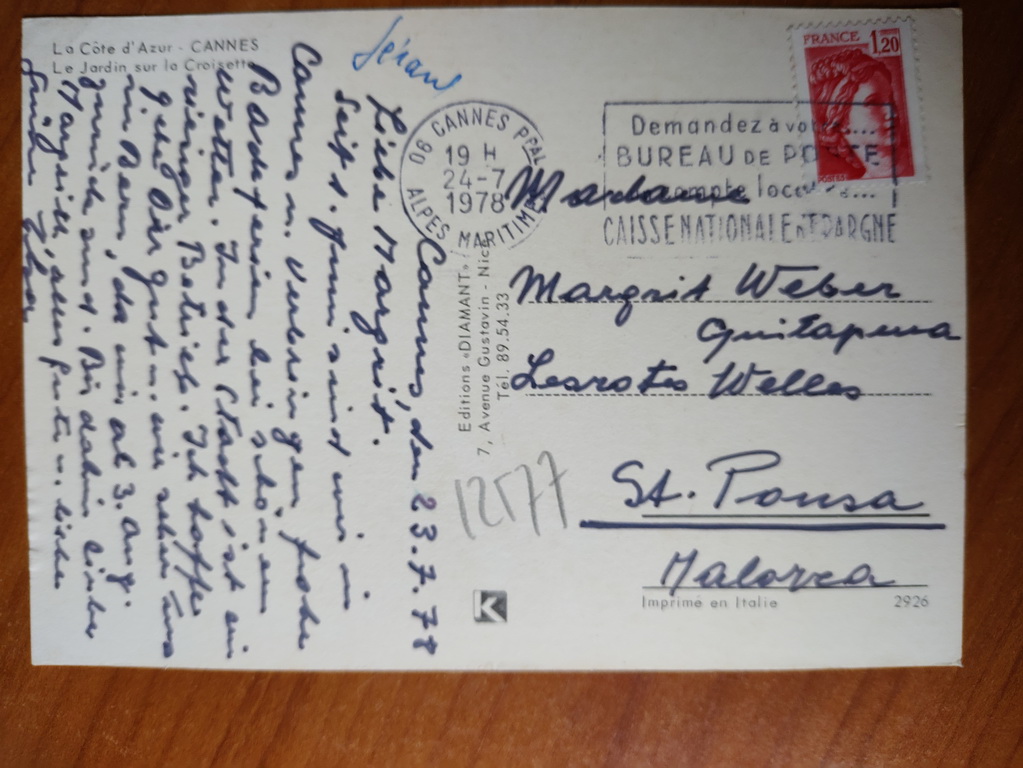 La Côte d'Azur - CANNES
Le Jardin sur la Croisette
Cannes, den 23.7.78
Liebe Margrit.
Seit 1. Juni sind wir in
Cannes u. verbringen frohe
Badeferien bei schönem
Wetter. In der Stadt ist ein
riesiger Betrieb. Ich hoffe
geht Dir gut u. wir sehen uns
in Bern, da wir ab 3. Aug.
zurück sind. Bis dahin liebe
Margrith, alles gute u. liebe
Editions «DIAMANT»
7, Avenue Gustavin - Nice
Tél. 89.54.33
12577
K
06 CANNES PPAL
19 H
24-7
1978
ALPES MARITIMES
Demandez à
BUREAU DE POSTE
compte
CAISSE NATIONALE D'EPARGNE
FRANCE 1,20
POSTES
Madame
Margrit Weber
Lesrotes Welles
St. Ponsa
Malorca
Imprimé en Italie 2926